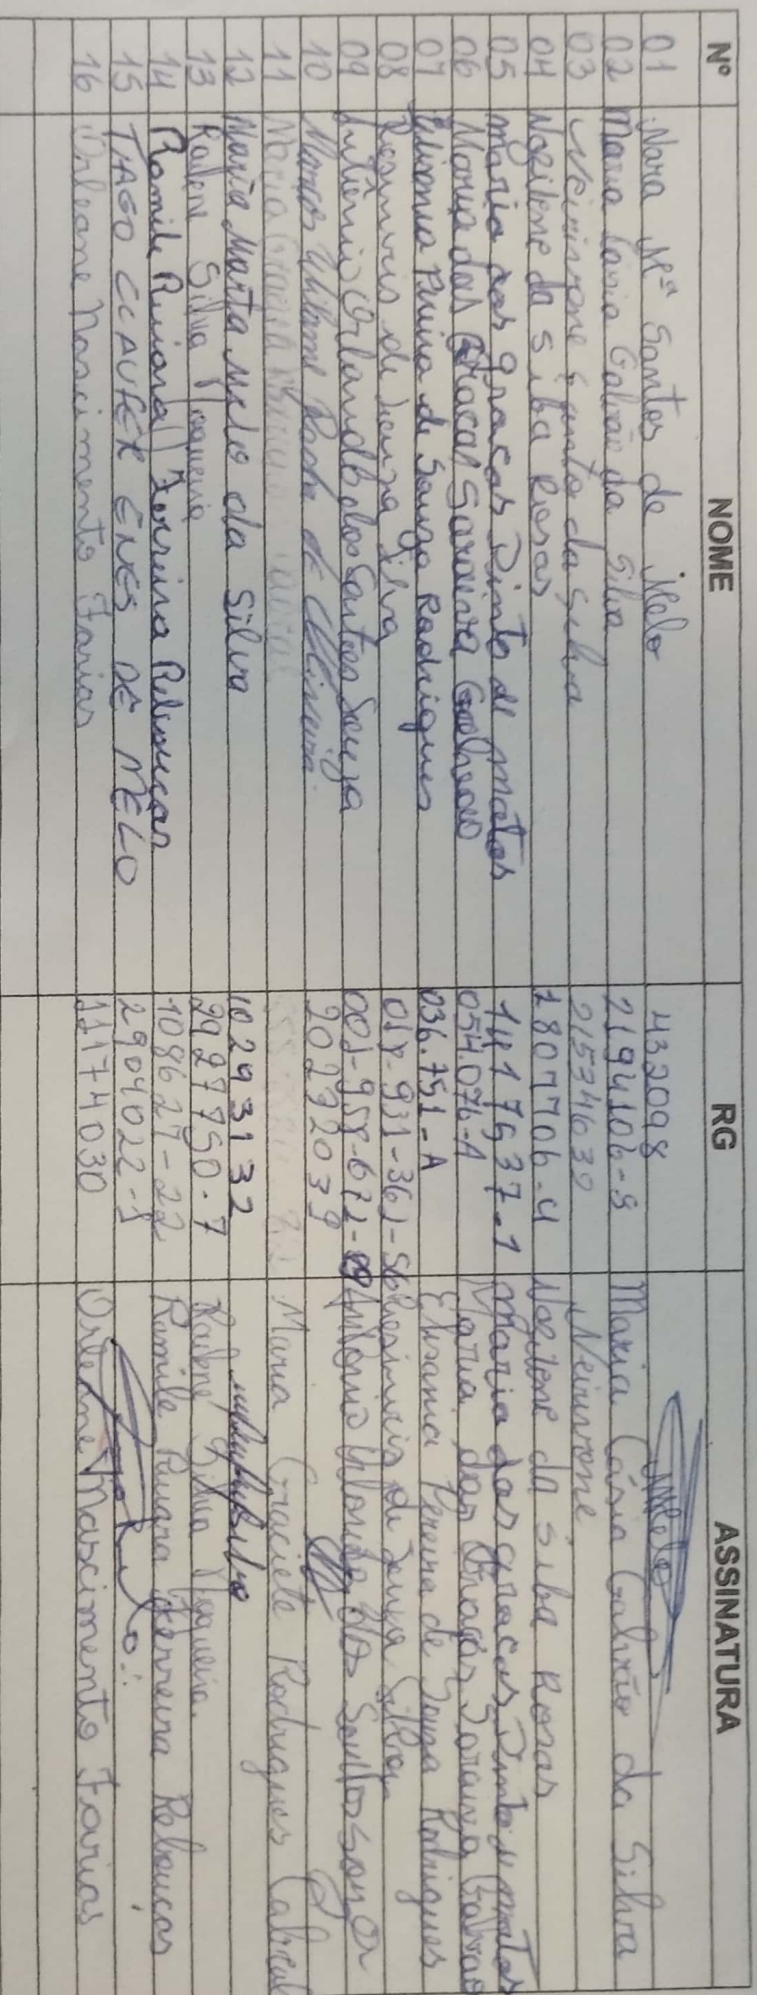 Nº NOME RG ASSINATURA
01 Nara Mª Santos de Melo 432098 NMelo
02 Maria Cásia Galvão da Silva 2194106-9 Maria Cásia Galvão da Silva
03 Neirivone da Silva 21534639 Neirivone
04 Nozilene da Silva Rosas 1807706-4 Nozilene da Silva Rosas
05 Maria das Graças Pinto de Matos 1417537-1 Maria das Graças Pinto de Matos
06 Maria das Graças Saraiva Galvão 054.076-A Maria das Graças Saraiva Galvão
07 de Souza Rodrigues 036.751-A Pereira de Souza Rodrigues
08 de Souza Silva de Souza Silva
09 Antônio Orlando dos Santos Souza Antônio Orlando dos Santos Souza
10 Marcos Rocha de Oliveira 20292039
11 Maria Graciete Maria Graciete Rodrigues Cabral
12 Maria Marta Melo da Silva 10293132
13 Railene Silva Nogueira 2927750-7 Railene Silva Nogueira
14 Ramile Ruviara Ferreira Rebouças 108627-22 Ramile Ruviara Ferreira Rebouças
15 TIAGO CLAUFER ENES DE MELO
16 Orleane Nascimento Farias 11174030 Orleane Nascimento Farias